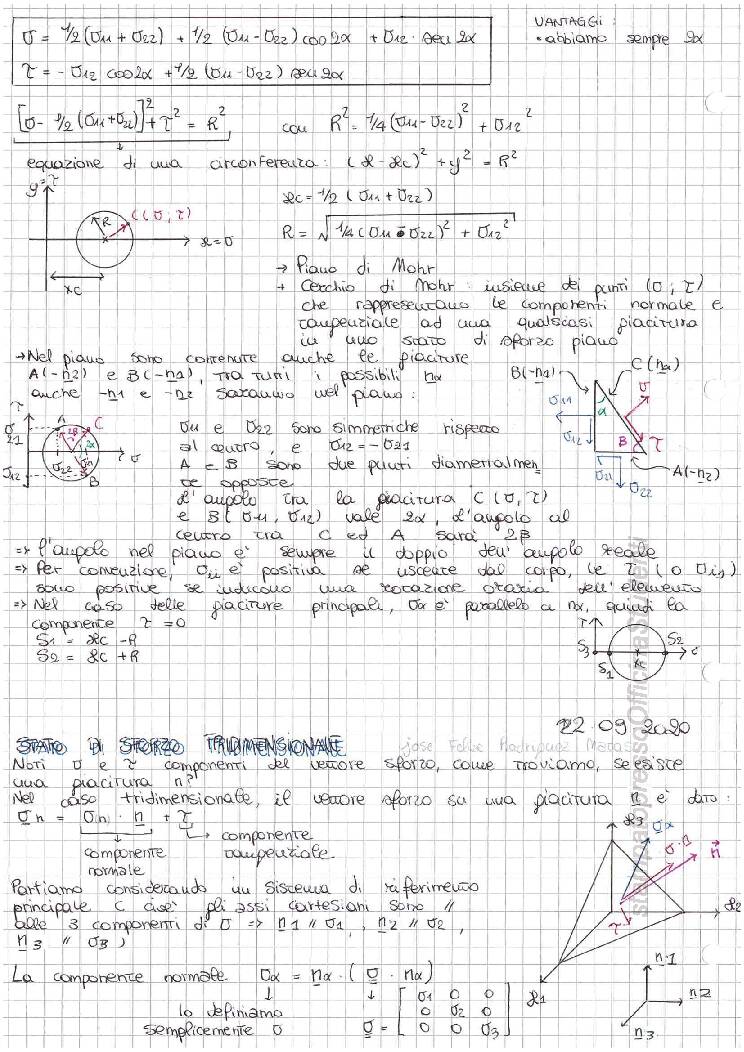 σ = 1/2 (σ11 + σ22) + 1/2 (σ11 - σ22) cos 2α + σ12 · sen 2α
τ = - σ12 cos 2α + 1/2 (σ11 - σ22) sen 2α
VANTAGGI:
• abbiamo sempre 2α
[σ - 1/2 (σ11 + σ22)]² + τ² = R²
con R² = 1/4 (σ11 - σ22)² + σ12²
equazione di una circonferenza: (x - xc)² + y² = R²
y = τ
R
C (σ; τ)
x = σ
xc
xc = 1/2 (σ11 + σ22)
R = √1/4 (σ11 - σ22)² + σ12²
→ Piano di Mohr
→ Cerchio di Mohr: insieme dei punti (σ; τ)
che rappresentano le componenti normale e
tangenziale ad una qualsiasi giacitura
in uno stato di sforzo piano
→ Nel piano sono contenute anche le giaciture
A(-n2) e B(-n1), tra tutti i possibili nα
anche -n1 e -n2 saranno nel piano:
B(-n1)
C (nα)
σ11
α
σ
σ12
β
τ
σ21
σ22
A(-n2)
τ
σ21
A
2β
C
2α
σ
σ12
σ22
σ11
B
σ11 e σ22 sono simmetriche rispetto
al centro, e σ12 = - σ21
A e B sono due punti diametralmen
te opposte
L'angolo tra la giacitura C (σ, τ)
e B (σ11, σ12) vale 2α, l'angolo al
centro tra C ed A sarà 2β
=> l'angolo nel piano è sempre il doppio dell'angolo reale
=> Per convenzione, σii è positiva se uscente dal corpo, le τ (o σij)
sono positive se inducono una rotazione oraria dell'elemento
=> Nel caso delle giaciture principali, σα è parallelo a nα, quindi la
componente τ = 0
S1 = xc - R
S2 = xc + R
τ
S3
S2
S1
xc
σ
22 09 2020
STATO DI SFORZO TRIDIMENSIONALE
Jose Felipe Rodriguez
Noti σ e τ componenti del vettore sforzo, come troviamo, se esiste
una giacitura n?
Nel caso tridimensionale, il vettore sforzo su una giacitura n è dato:
σn = σn · n + τ
componente
normale
componente
tangenziale
Partiamo considerando un sistema di riferimento
principale C cioè gli assi cartesiani sono //
alle 3 componenti di σ => n1 // σ1, n2 // σ2,
n3 // σ3)
x3
σα
σ·n
n
τ
x2
x1
La componente normale σα = nα · (σ · nα)
lo definiamo
semplicemente σ
σ = [σ1 0 0
0 σ2 0
0 0 σ3]
n1
n2
n3
stampatopressoOfficinaStudenti